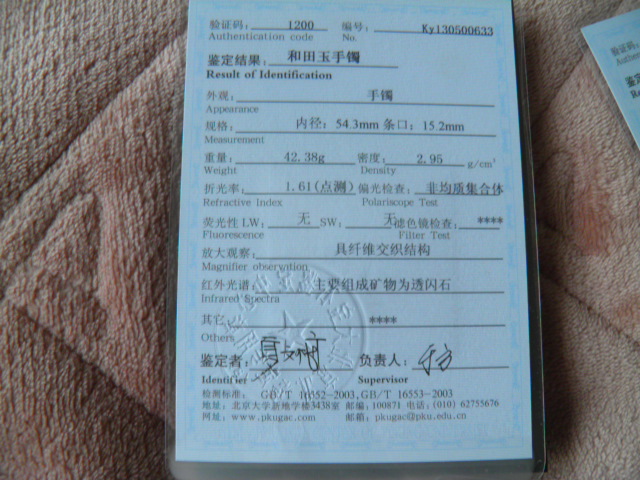 验证码： 1200 编号： Ky130500633
Authentication code No.
鉴定结果： 和田玉手镯
Result of Identification
外观： 手镯
Appearance
规格： 内径：54.3mm 条口：15.2mm
Measurement
重量： 42.38g 密度： 2.95 g/cm³
Weight Density
折光率： 1.61(点测) 偏光检查： 非均质集合体
Refractive Index Polariscope Test
荧光性 LW： 无 SW： 无 滤色镜检查： ****
Fluorescence Filter Test
放大观察： 具纤维交织结构
Magnifier observation
红外光谱： 主要组成矿物为透闪石
Infrared Spectra
其它： ****
Others
鉴定者： 负责人：
Identifier Supervisor
检测标准： GB/T 16552-2003,GB/T 16553-2003
地址：北京大学新地学楼3438室 邮编：100871 电话：(010) 62755676
网址：www.pkugac.com 邮箱：pkugac@pku.edu.cn
验证码
Authen
鉴定
Re